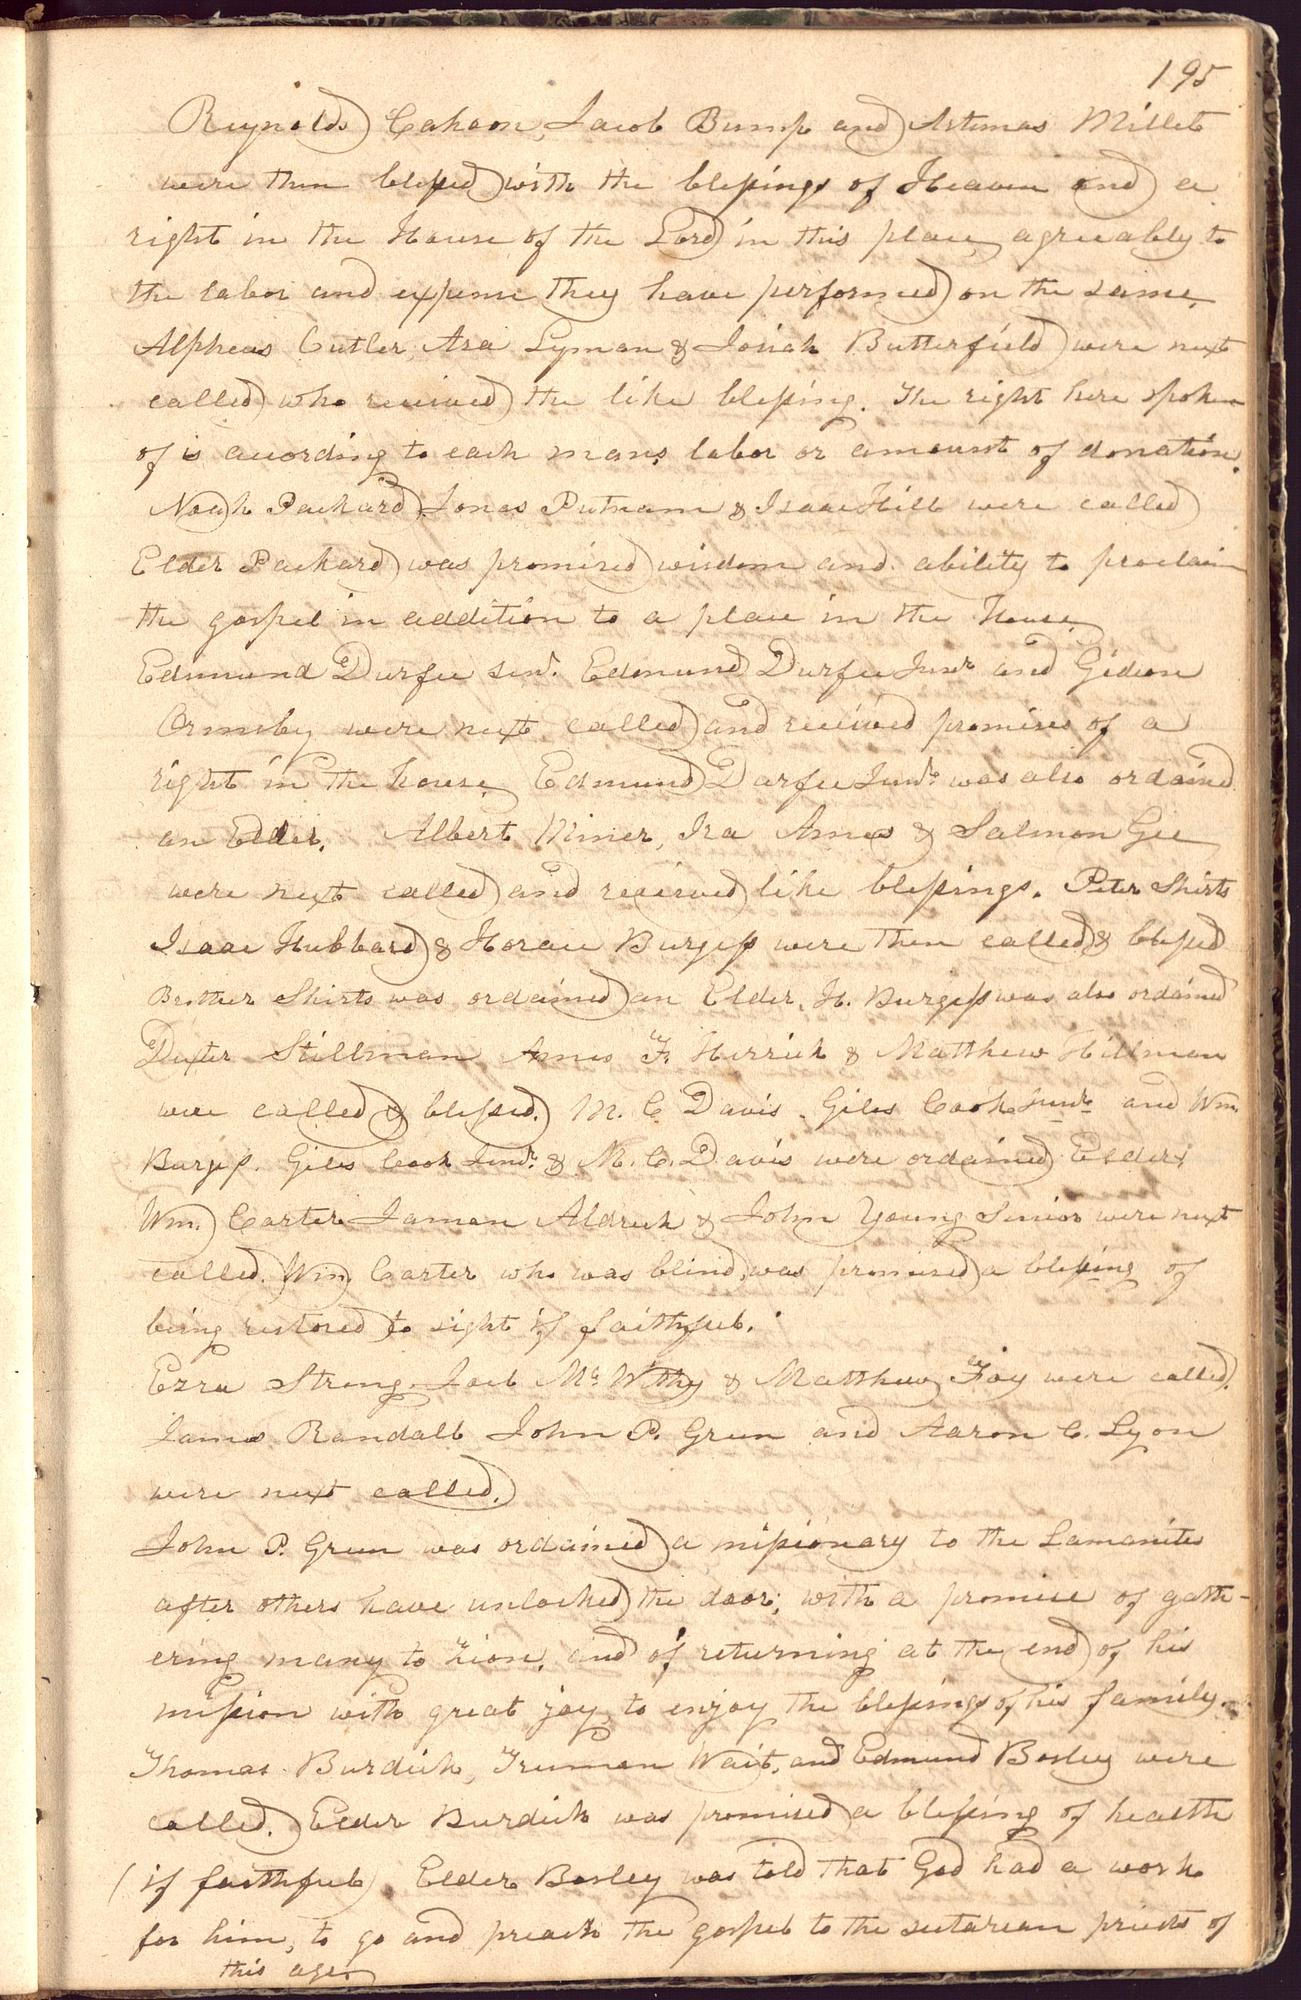 195
Reynolds Cahoon, Jacob Bump and Artimas Millet
were then blessed with the blessings of Heaven and a
right in the House of the Lord in this place, agreeably to
the labor and expense they have performed on the same.
Alpheas Cutler, Asa Lyman & Josiah Butterfield were next
called who received the like blessing. The right here spoken
of is acording to each mans labor or amount of donation.
Noah Packard, Jonas Putnam & Isaac Hill were called
Elder Packard was promised wisdom and ability to proclaim
the gospel in addition to a place in the House.
Edmund Durfee senr. Edmund Durfee Junr and Gideon
Ormsby were next called and received promises of a
right in the house. Edmund Durfee Junr was also ordained
an Elder. Albert Miner, Ira Ames & Salmon Gee
were next called and received like blessings. Peter Shirts
Isaac Hubbard & Horace Burgess were then called & blessed
Brother Shirts was ordained an Elder. H. Burgess was also ordained
Dexter Stillman Amos F. Herrick & Matthew Hillman
were called & blessed. M. C. Davis. Giles Cook Junr. and Wm.
Burgess. Giles Cook Junr. & M. C. Davis were ordained Elders
Wm. Carter Jaman Aldrich & John Young Senior were next
called. Wm. Carter who was blind, was promised a blessing of
being restored to sight if faithful.
Ezra Strong. Joel Mc Withy & Matthew Foy were called.
James Randall John P. Green and Aaron C. Lyon
were next called.
John P. Green was ordained a missionary to the Lamanites
after others have unlocked the door; with a promise of gath-
ering many to Zion, and of returning at the end of his
mission with great joy, to enjoy the blessings of his family.
Thomas Burdick, Truman Wait, and Edmund Bosley were
called. Elder Burdick was promised a blessing of health
(if faithful). Elder Bosley was told that God had a work
for him, to go and preach the gospel to the sectarean priests of
this age.